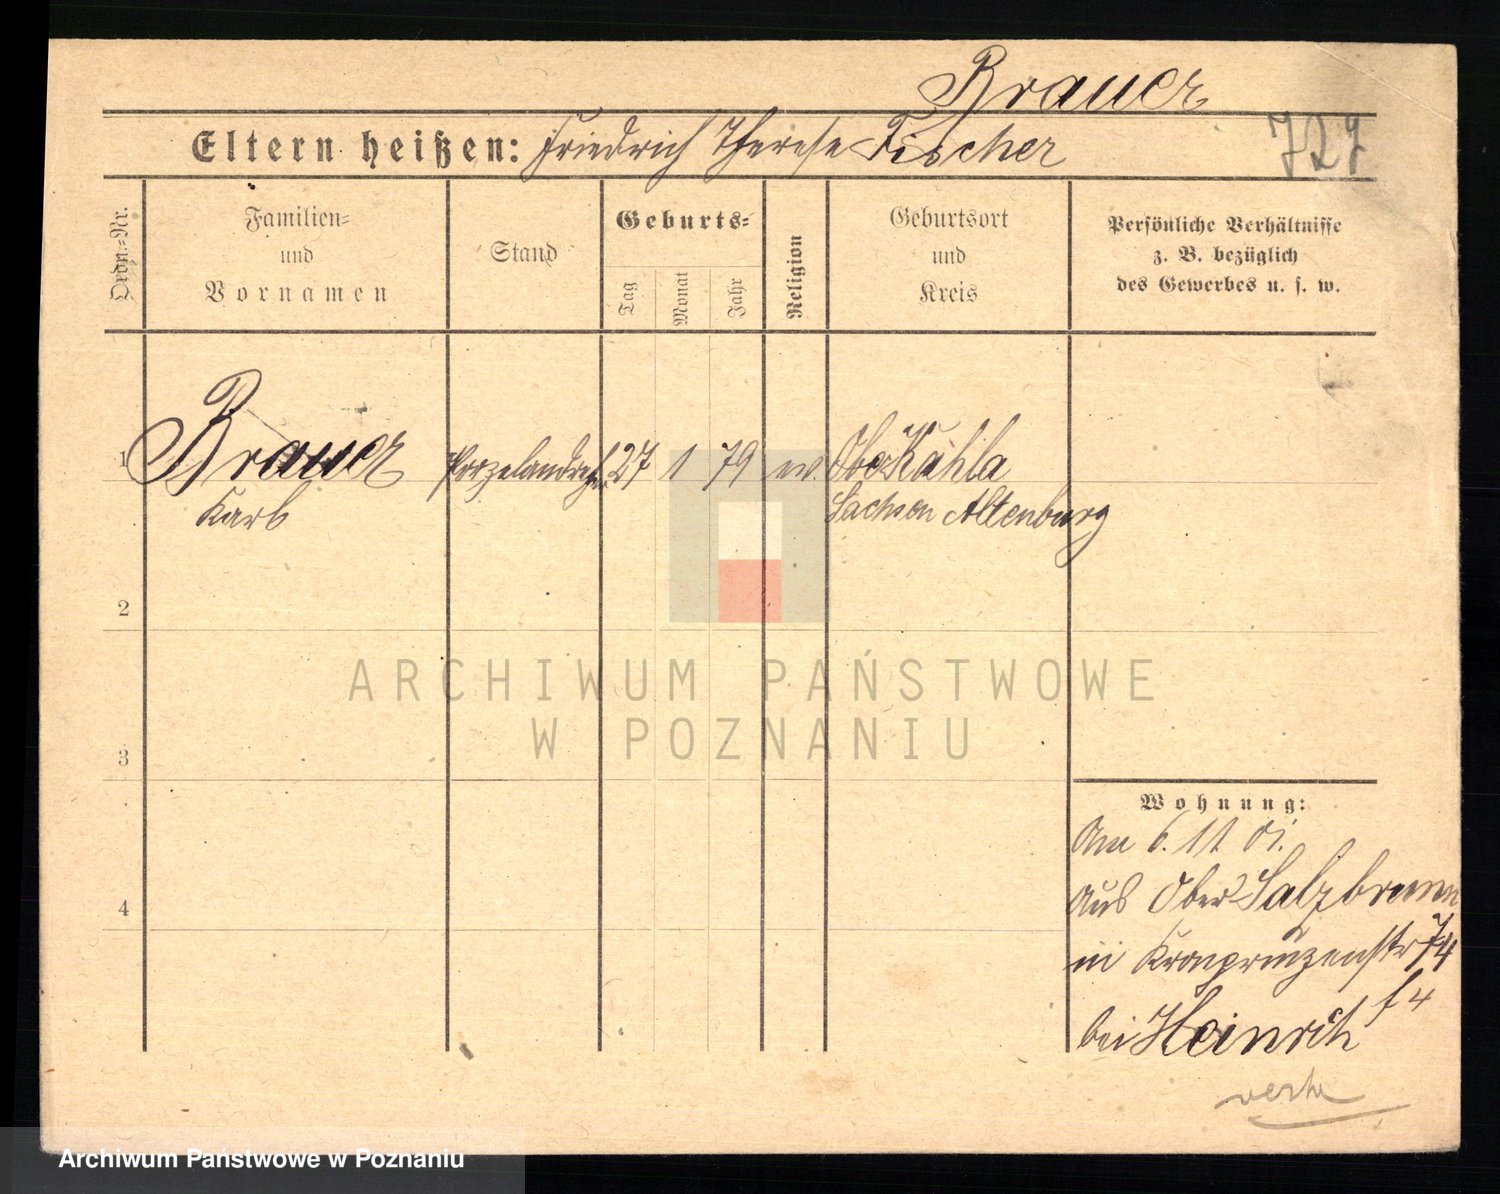 Brauer
Eltern heißen: Friedrich Therese Fischer
727
Ordn.-Nr.
Familien-
und
Vornamen
Stand
Geburts-
Tag
Monat
Jahr
Religion
Geburtsort
und
Kreis
Persönliche Verhältnisse
z. B. bezüglich
des Gewerbes u. s. w.
1 Brauer Porzelandreher 27 1 79 ev. Ober Kahla
Karl Sachsen Altenburg
2
3
4
Wohnung:
Am 6. 11. 01.
aus Ober Salzbrunn
in Kronprinzenstr 74
bei Heinrich
ARCHIWUM PAŃSTWOWE
W POZNANIU
Archiwum Państwowe w Poznaniu